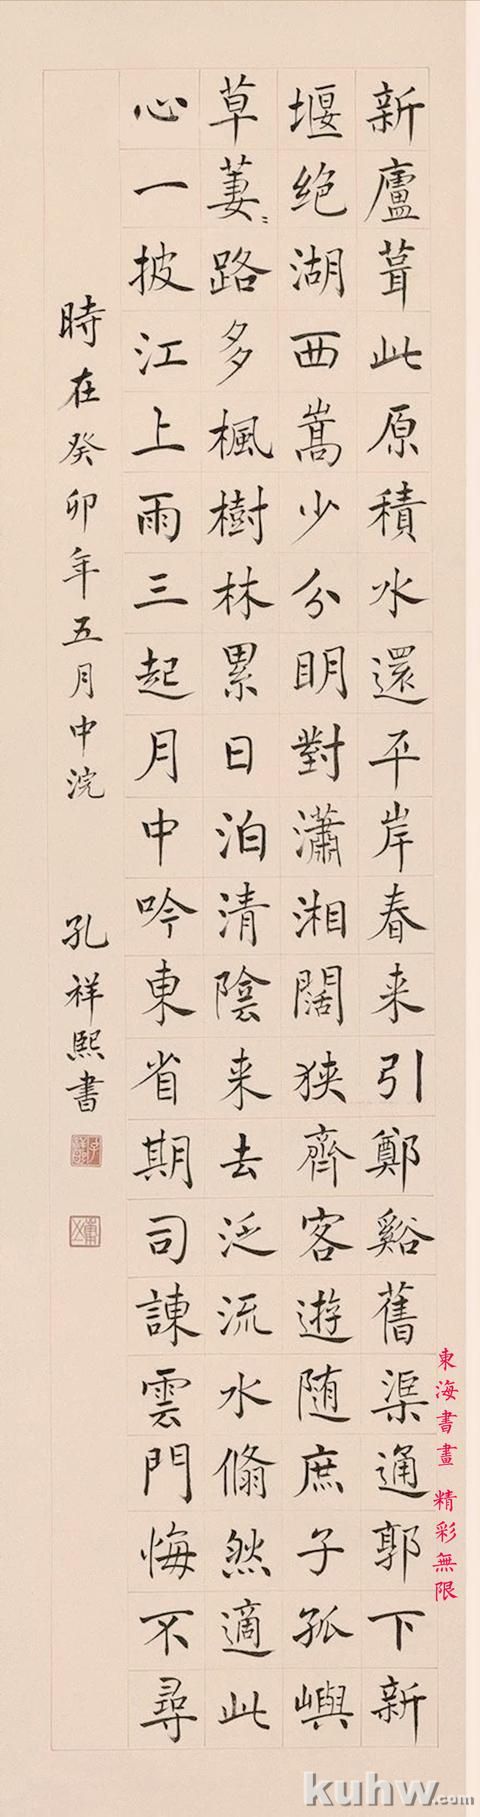 新廬葺此原積水還平岸春来引鄭谿舊渠通郭下新
堰绝湖西嵩少分明對瀟湘闊狭齊客遊随庶子孤嶼
草萋〻路多楓樹林累日泊清陰来去泛流水翛然適此
心一披江上雨三起月中吟東省期司諫雲門悔不尋
時在癸卯年五月中浣
孔祥熙書
東海書畫 精彩無限
kuhw.com